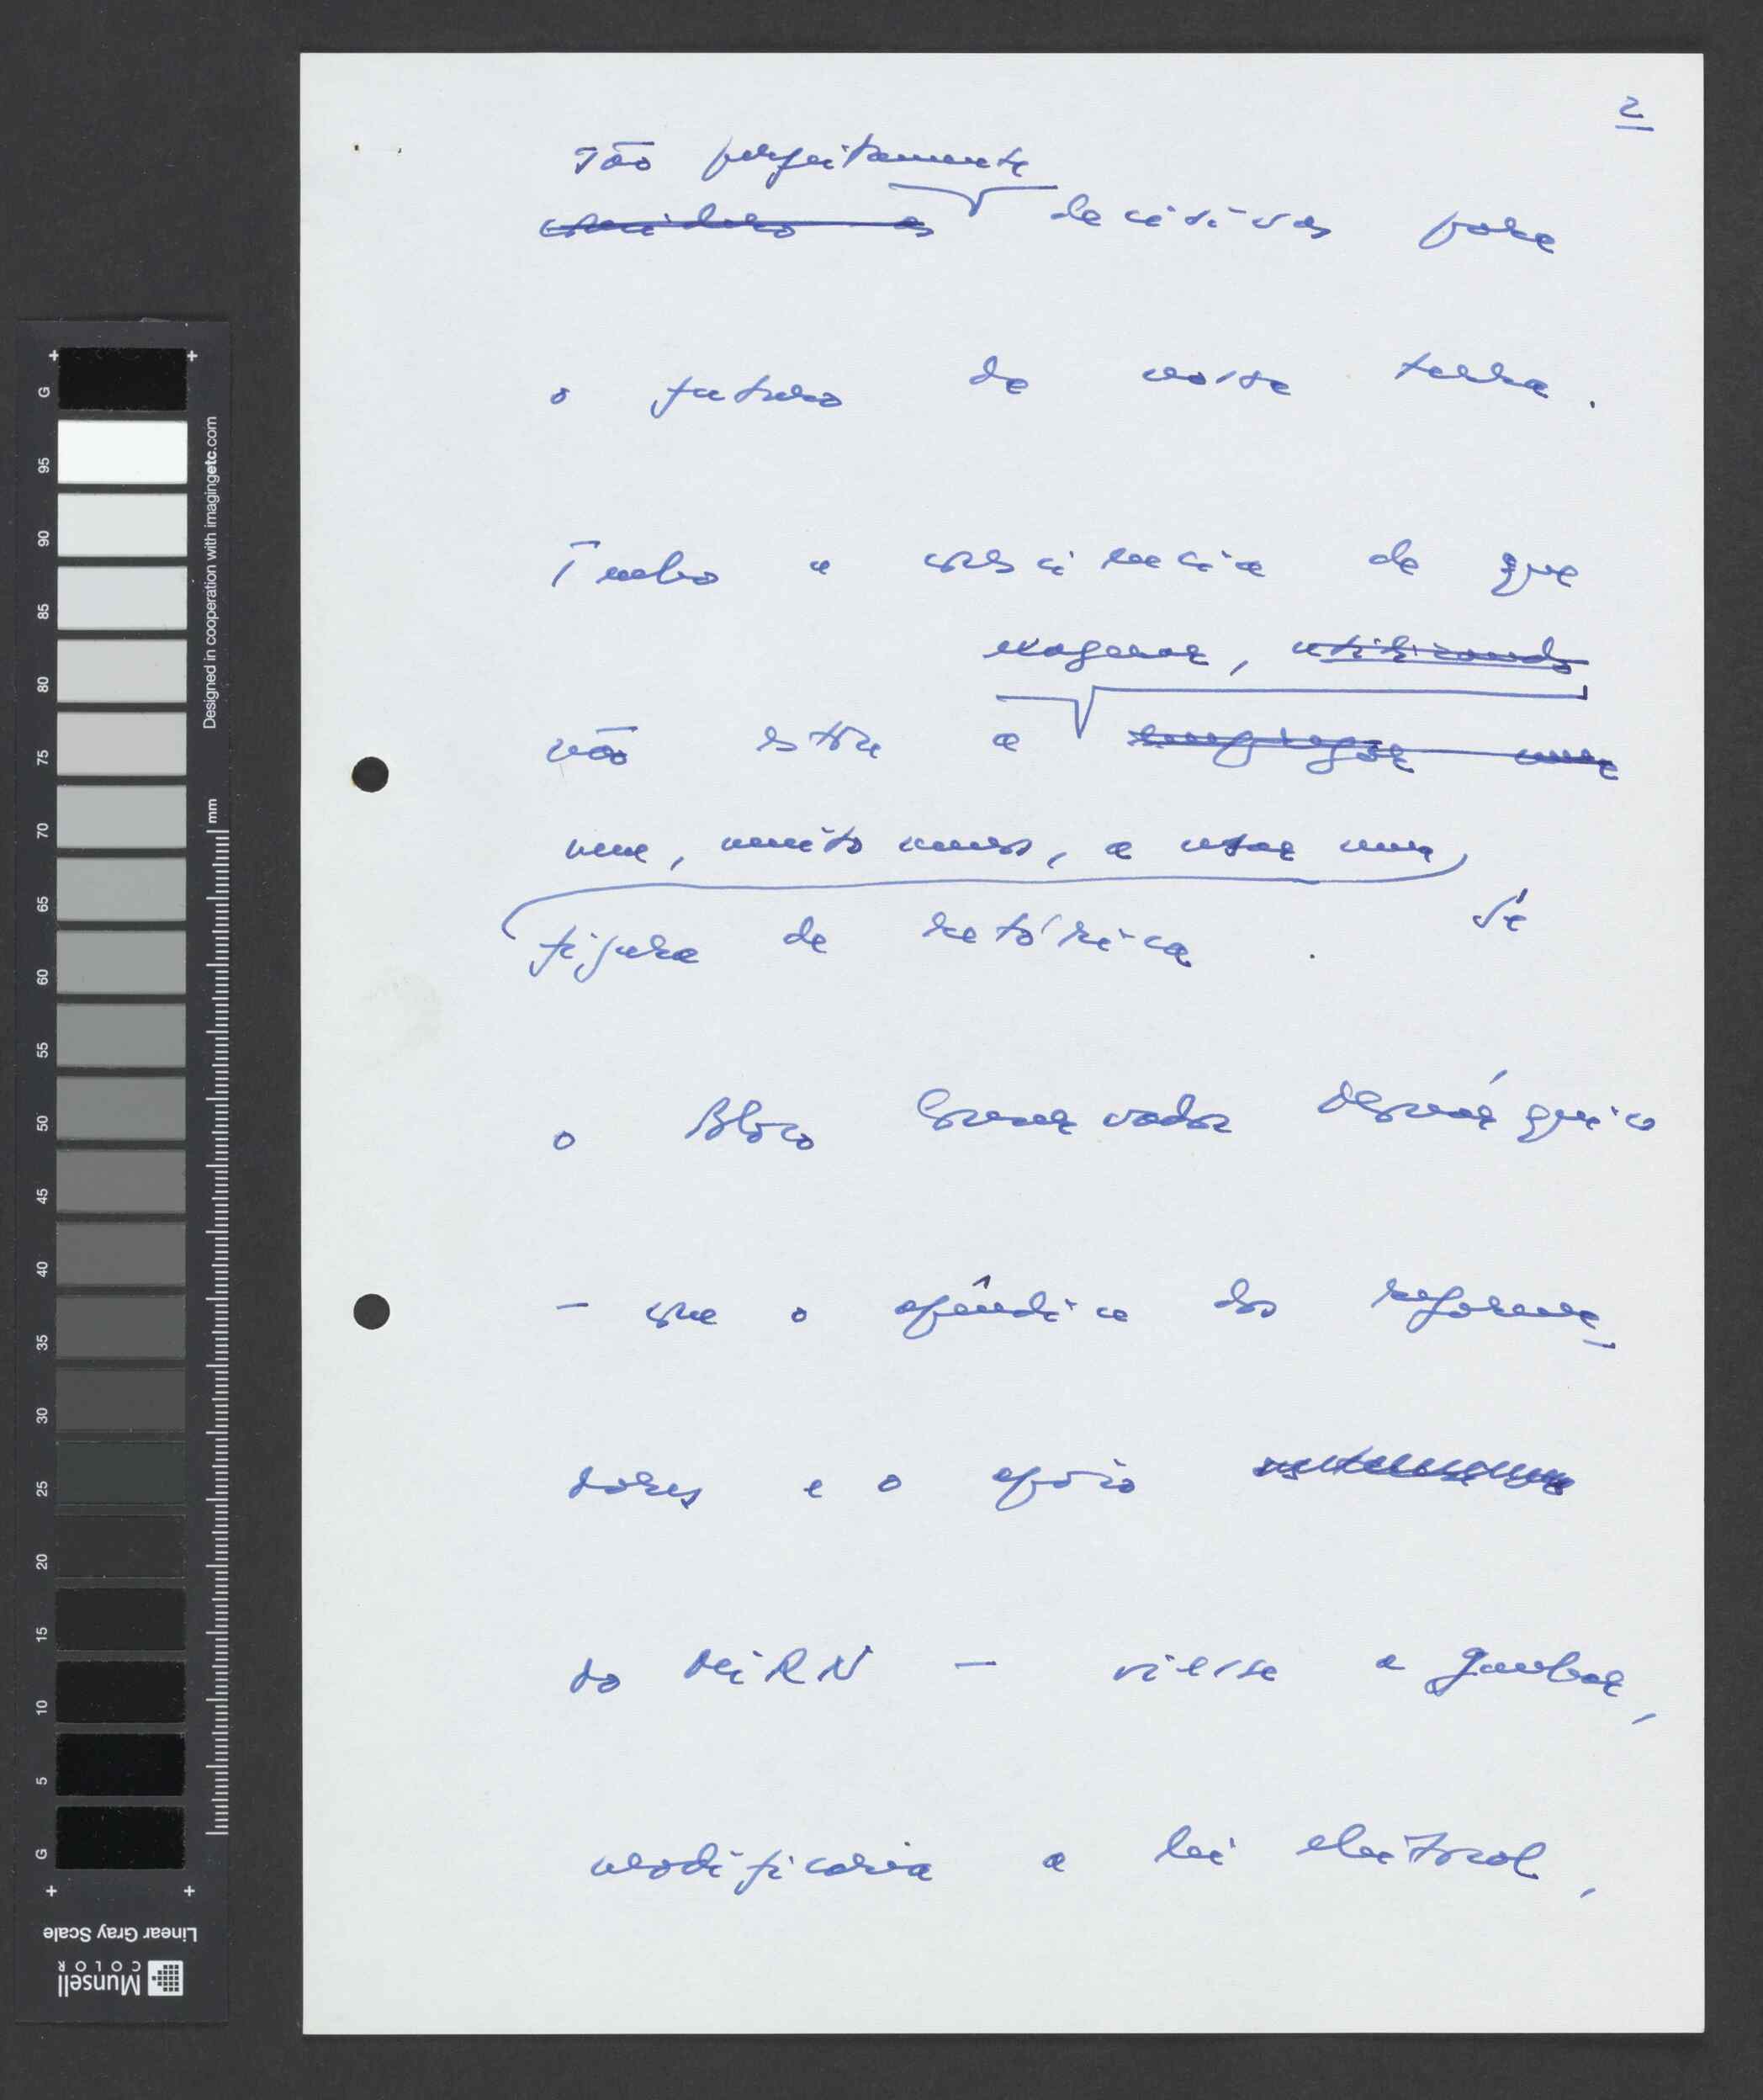 2
Tão perfeitamente
considero as decisivas para
o futuro da nossa terra.
Tenho a consciência de que
exagerar, utilizando
não estou a empregar uma
nem, muito menos, a usar uma
figura de retórica. Se
o Bloco Conservador Monárquico
- com o apêndice dos reforma_
dores e o apoio
do MIRN - viesse a ganhar,
modificaria a lei eleitoral,
G
95
90
85
80
75
70
65
60
55
50
45
40
35
30
25
20
15
10
5
G
Designed in cooperation with imagingetc.com
mm
Linear Gray Scale
Munsell
COLOR